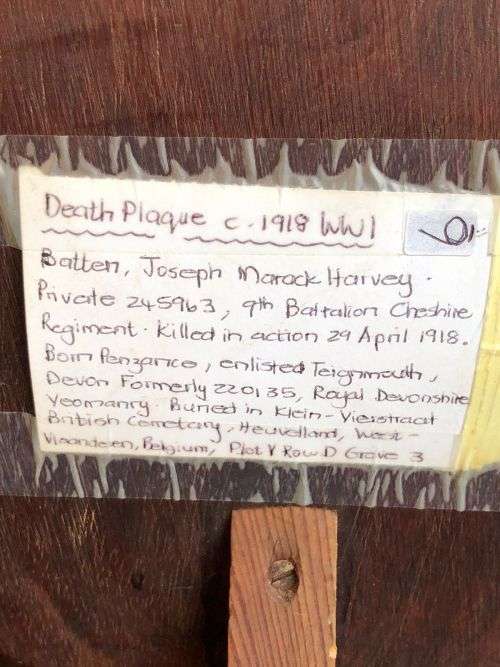 Death Plaque c. 1918 WW1
Batten, Joseph Marack Harvey.
Private 245963, 9th Battalion Cheshire
Regiment. Killed in action 29 April 1918.
Born Penzance, enlisted Teignmouth,
Devon Formerly 220135, Royal Devonshire
Yeomanry. Buried in Klein-Vierstraat
British Cemetary, Heuvelland, West-
Vlaanderen, Belgium, Plot V Row D Grave 3